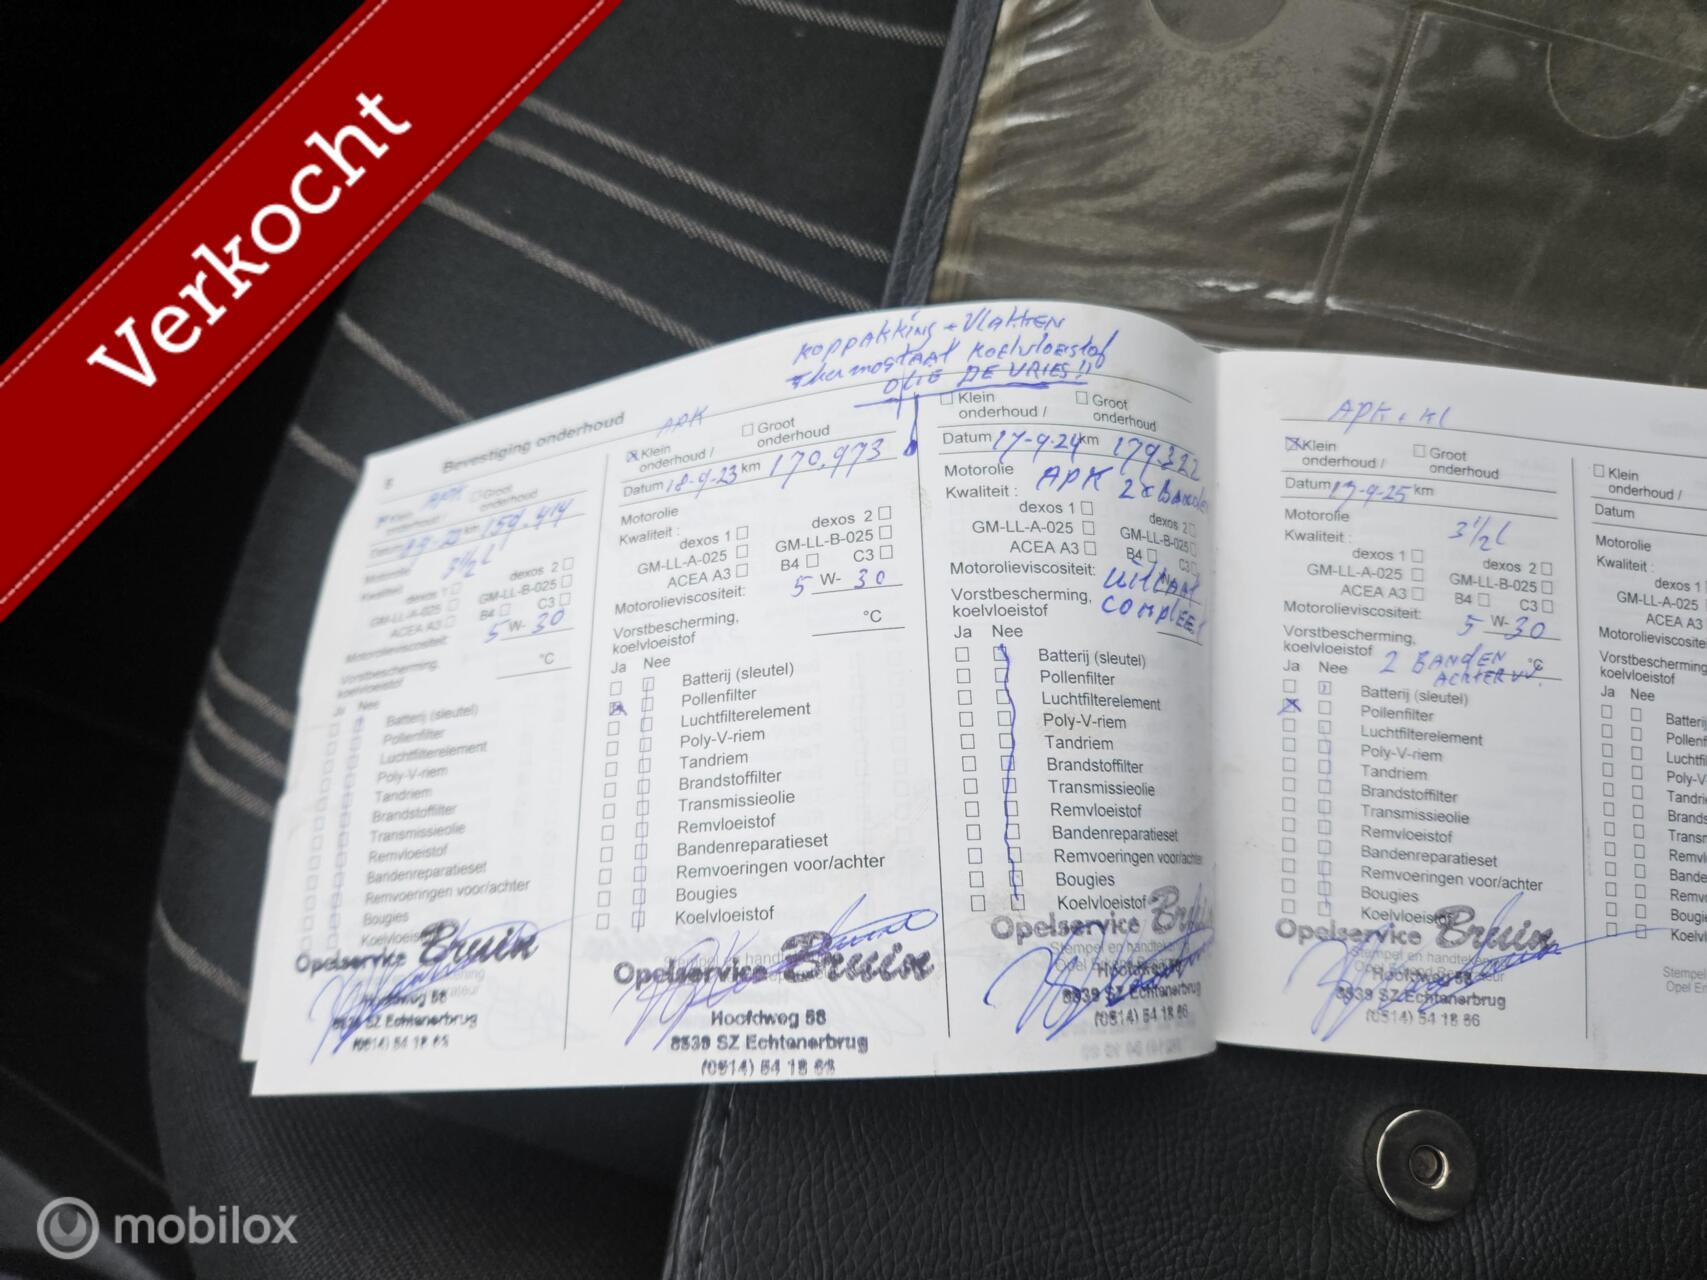 Verkocht
Koppakking + Vlakken
Thermostaat Koelvloeistof
OLIE DE VRIES!!
8 Bevestiging onderhoud
APK
Klein onderhoud /
Groot onderhoud
Datum km 159.414
Motorolie 3½ l
Kwaliteit
dexos 1 dexos 2
GM-LL-A-025 GM-LL-B-025
ACEA A3 B4 C3
Motorolieviscositeit: 5 W- 30
Vorstbescherming,
koelvloeistof °C
Ja Nee
Batterij (sleutel)
Pollenfilter
Luchtfilterelement
Poly-V-riem
Tandriem
Brandstoffilter
Transmissieolie
Remvloeistof
Bandenreparatieset
Remvoeringen voor/achter
Bougies
Opelservice Bruin
Hoofdweg 58
SZ Echtenerbrug
APK
Klein
onderhoud /
Groot
onderhoud
Datum 18-9-23 km 170.973
Motorolie
Kwaliteit :
dexos 1 dexos 2
GM-LL-A-025 GM-LL-B-025
ACEA A3 B4 C3
Motorolieviscositeit: 5 W- 30
Vorstbescherming,
koelvloeistof °C
Ja Nee
Batterij (sleutel)
Pollenfilter
Luchtfilterelement
Poly-V-riem
Tandriem
Brandstoffilter
Transmissieolie
Remvloeistof
Bandenreparatieset
Remvoeringen voor/achter
Bougies
Koelvloeistof
Opelservice Bruin
Hoofdweg 58
8539 SZ Echtenerbrug
(0514) 54 18 66
Klein
onderhoud /
Groot
onderhoud
Datum 17-9-24 km 179322
Motorolie
Kwaliteit : APK 2x Banden
dexos 1 dexos 2
GM-LL-A-025 GM-LL-B-025
ACEA A3 B4 C3
Motorolieviscositeit: W- UITLAAT
Vorstbescherming,
koelvloeistof COMPLEET
Ja Nee
Batterij (sleutel)
Pollenfilter
Luchtfilterelement
Poly-V-riem
Tandriem
Brandstoffilter
Transmissieolie
Remvloeistof
Bandenreparatieset
Remvoeringen voor/achter
Bougies
Koelvloeistof
Opelservice Bruin
Hoofdweg 58
8539 SZ Echtenerbrug
(0514) 54 18 66
APK + Kl
Klein
onderhoud /
Groot
onderhoud
Datum 17-9-25 km
Motorolie
Kwaliteit : 3½ l
dexos 1 dexos 2
GM-LL-A-025 GM-LL-B-025
ACEA A3 B4 C3
Motorolieviscositeit: 5 W- 30
Vorstbescherming,
koelvloeistof 2 BANDEN °C
Ja Nee ACHTER VV.
Batterij (sleutel)
Pollenfilter
Luchtfilterelement
Poly-V-riem
Tandriem
Brandstoffilter
Transmissieolie
Remvloeistof
Bandenreparatieset
Remvoeringen voor/achter
Bougies
Koelvloeistof
Opelservice Bruin
Hoofdweg 58
8539 SZ Echtenerbrug
(0514) 54 18 66
Klein
onderhoud /
Datum
Motorolie
Kwaliteit :
dexos 1
GM-LL-A-025
ACEA A3
Motorolieviscosite
Vorstbescherming
koelvloeistof
Ja Nee
Batterij
Pollenf
Luchtfil
Poly-V
Tandri
Brands
Transm
Remvl
Bande
Remvo
Bougi
Koelvl
Stempel
Opel Er
mobilox